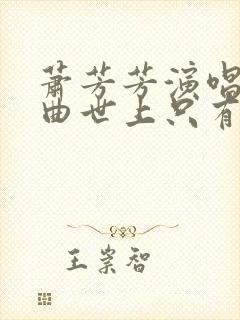 萧芳芳演唱
曲世上只有
王崇智